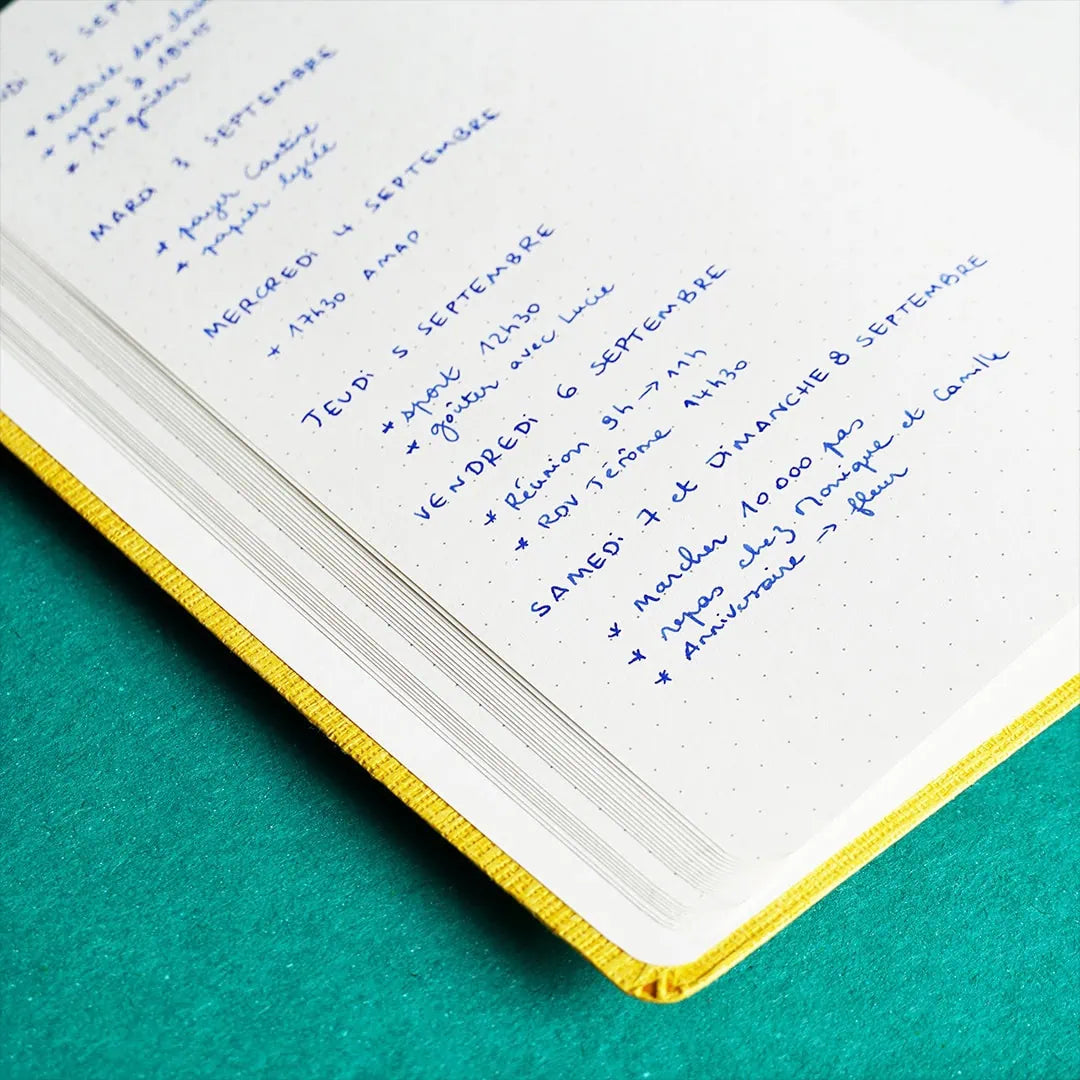 2 SEPT
* rentrée des
* sport à 18h15
* 1er goûter
MARDI 3 SEPTEMBRE
* payer cantine
* papier lycée
MERCREDI 4 SEPTEMBRE
* 17h30 AMAP
JEUDI 5 SEPTEMBRE
* sport 12h30
* goûter avec Lucie
VENDREDI 6 SEPTEMBRE
* Réunion 9h → 11h
* RDV Jérôme 14h30
SAMEDI 7 et DIMANCHE 8 SEPTEMBRE
* Marcher 10 000 pas
* repas chez Monique et Camille
* Anniversaire → fleur